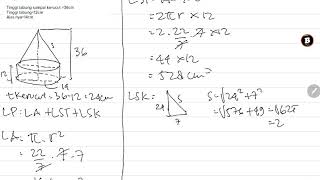 Tinggi tabung sampai kerucut =36cm
Tinggi tabung=12cm
Alas nya=14cm
36
12
14
t kerucut = 36-12 = 24cm
LP: LA + LST + LSK
LA = π . r²
= 22/7 . 7 . 7
= 2πr x 12
= 2 . 22/7 . 7 x 12
= 44 x 12
= 528 cm²
LSK =
24
s
7
S = √24² + 7²
= √576 + 49 = √625
= 2
B